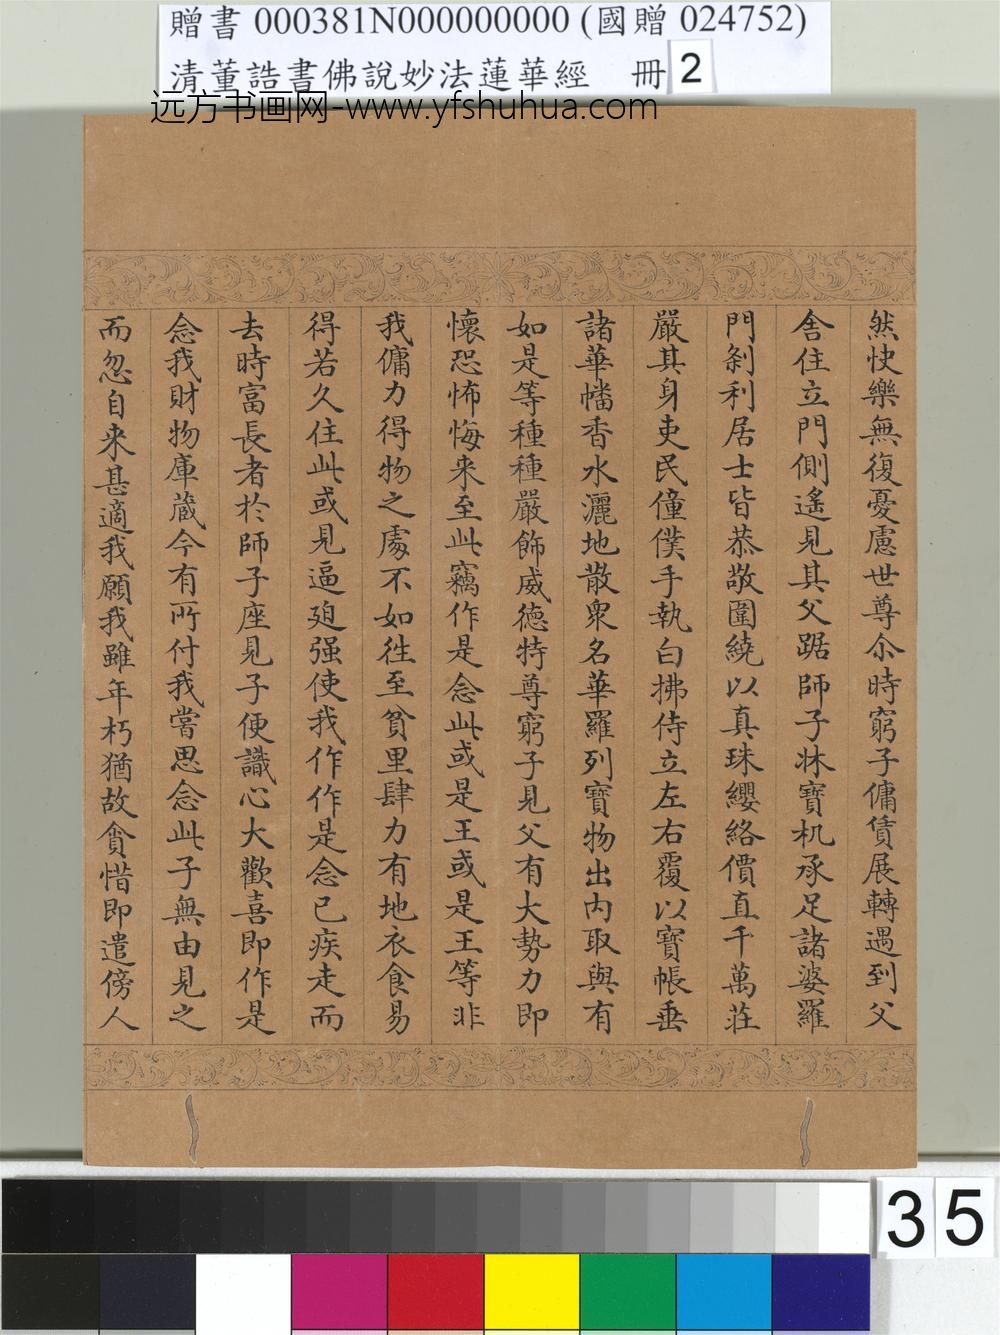 贈書 000381N000000000 (國贈 024752)
清董誥書佛說妙法蓮華經 冊 2
远方书画网-www.yfshuhua.com
然快樂無復憂慮世尊尒時窮子傭賃展轉遇到父
舍住立門側遙見其父踞師子牀寶机承足諸婆羅
門剎利居士皆恭敬圍繞以真珠纓絡價直千萬莊
嚴其身吏民僮僕手執白拂侍立左右覆以寶帳垂
諸華幡香水灑地散眾名華羅列寶物出內取與有
如是等種種嚴飾威德特尊窮子見父有大勢力即
懷恐怖悔来至此竊作是念此或是王或是王等非
我傭力得物之處不如往至貧里肆力有地衣食易
得若久住此或見逼迫强使我作作是念已疾走而
去時富長者於師子座見子便識心大歡喜即作是
念我財物庫藏今有所付我嘗思念此子無由見之
而忽自来甚適我願我雖年朽猶故貪惜即遣傍人
35